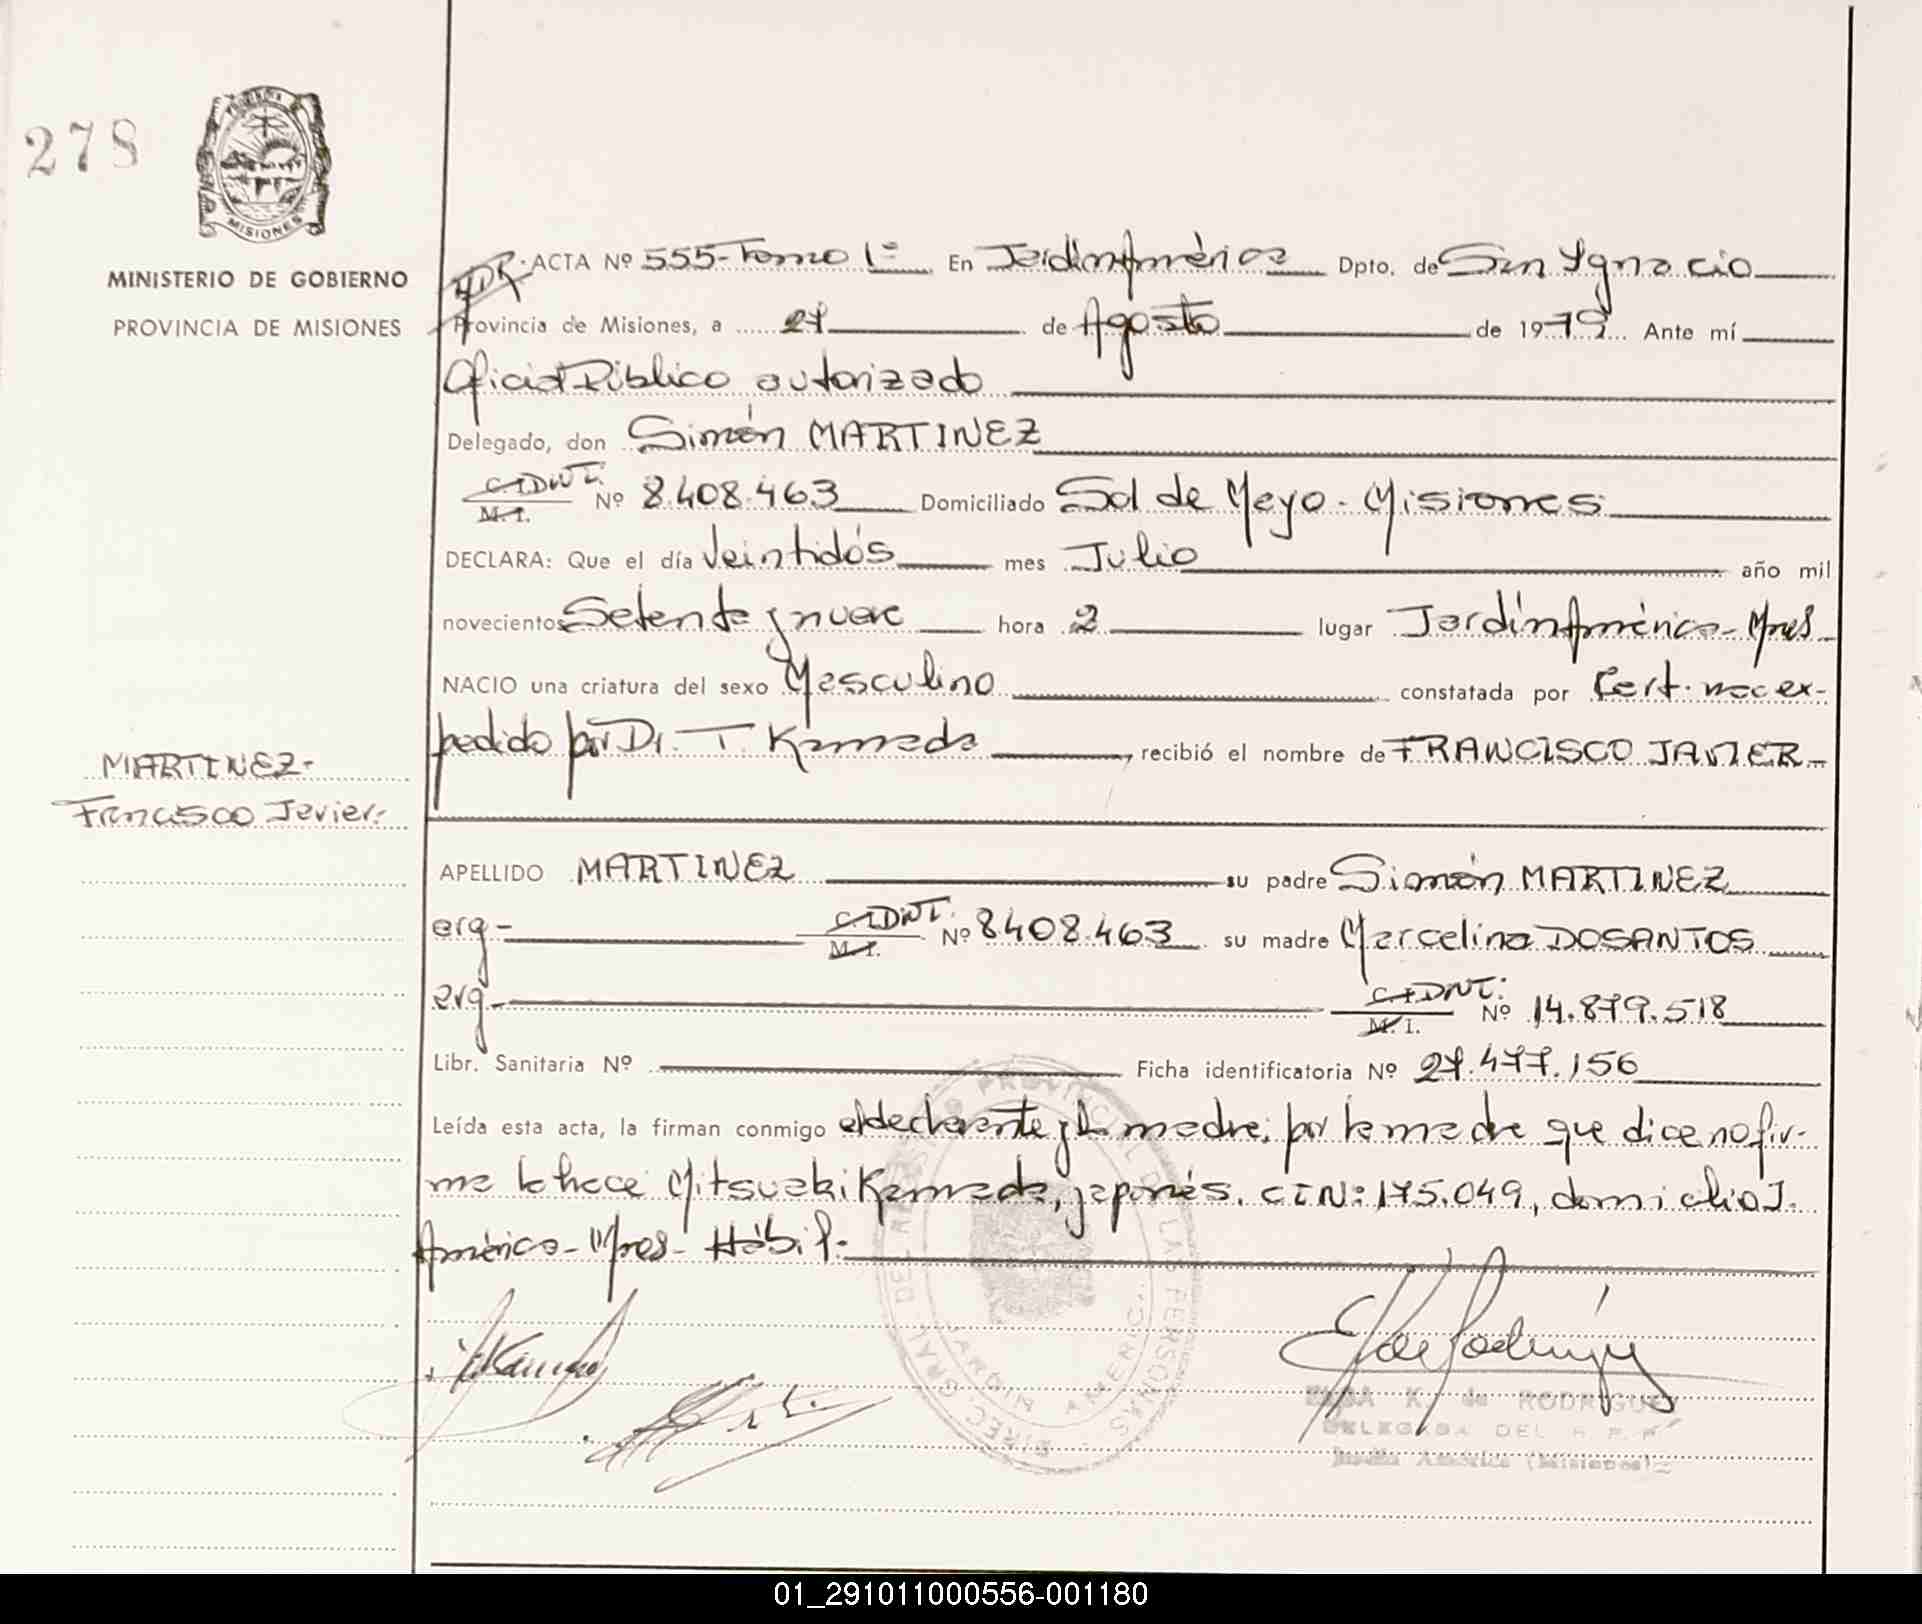 278
MISIONES
MINISTERIO DE GOBIERNO
PROVINCIA DE MISIONES
ACTA Nº 555-Tomo 1º En Jardín América Dpto. de San Ignacio
Provincia de Misiones, a 27 de Agosto de 1979 Ante mí
Oficial Público autorizado
Delegado, don Simón MARTINEZ
C.I.DNI. Nº 8.408.463 Domiciliado Sol de Mayo - Misiones
M. I.
DECLARA: Que el día Veintidós mes Julio año mil
novecientos Setenta y nueve hora 2 lugar Jardín América - Mnes
NACIO una criatura del sexo Masculino constatada por Cert. nac ex-
pedido por Dr. T. Kameda, recibió el nombre de FRANCISCO JAVIER-
MARTINEZ-
Francisco Javier-
APELLIDO MARTINEZ su padre Simón MARTINEZ
arg- C.I.DNI. Nº 8408.463 su madre Marcelina DOSANTOS
M. I.
arg- C.I.DNI. Nº 14.879.518
M. I.
Libr. Sanitaria Nº Ficha identificatoria Nº 27.477.156
Leída esta acta, la firman conmigo el declarante y la madre, por la madre que dice no fir-
ma lo hace Mitsuaki Kameda, japonés. CIN: 175.049, domicilio J.
América - Mnes - Hábil-
DIREC. GRAL. DE REGISTRO PROVINCIAL DE LAS PERSONAS
JARDIN AMERIC.
K. de RODRIGUEZ
DELEGADA DEL R. P. P.
Jardín América (Misiones)
01_291011000556-001180